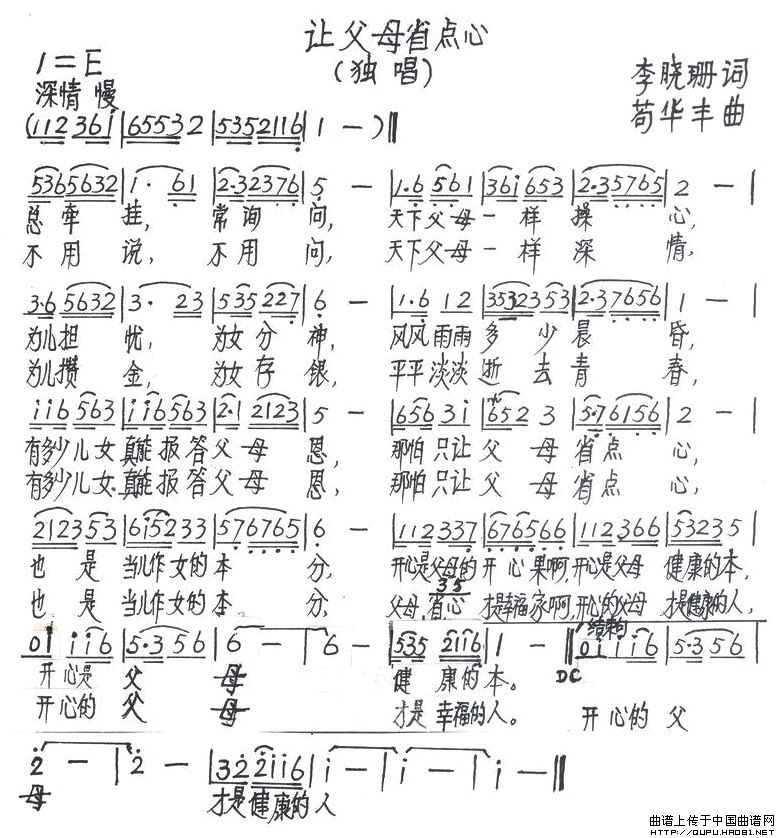 让父母省点心
(独唱)
1=E
深情 慢
李晓珊词
苟华丰曲
(112361|655532|5352116|1 — )‖
536 5632|1· 61|2·32376|5 — |1·6 561|361 653|2·35765|2 — |
总牵挂,常询问,天下父母一样操心,
不用说,不用问,天下父母一样深情,
3·6 5632|3· 23|535227|6 — |1·6 12|3532353|2·37656|1 — |
为儿担忧,为女分神,风风雨雨多少晨昏,
为儿攒金,为女存银,平平淡淡逝去青春,
116 563|116563|2·1 2123|5 — |656 31|652 3|5·76156|2 — |
有多少儿女真能报答父母恩,那怕只让父母省点心,
有多少儿女真能报答父母恩,那怕只让父母省点心,
212353|615233|576765|6 — |112337|676566|112366|53235|
也是当儿作女的本分,开心是父母的开心果啊,开心是父母健康的本,
35
也是当儿作女的本分,父母省心才是幸福家啊,开心的父母才是健康的人,
结构
01 116|5·3 56|6 — |6 — |535 2116|1 — ‖01116|5·356|
开心是父母健康的本。DC
开心的父母才是幸福的人。开心的父
2 — |2 — |322116|1 — |1 — |1 — ‖
母 才是健康的人
曲谱上传于中国曲谱网
HTTP://QUPU.HAO81.NET